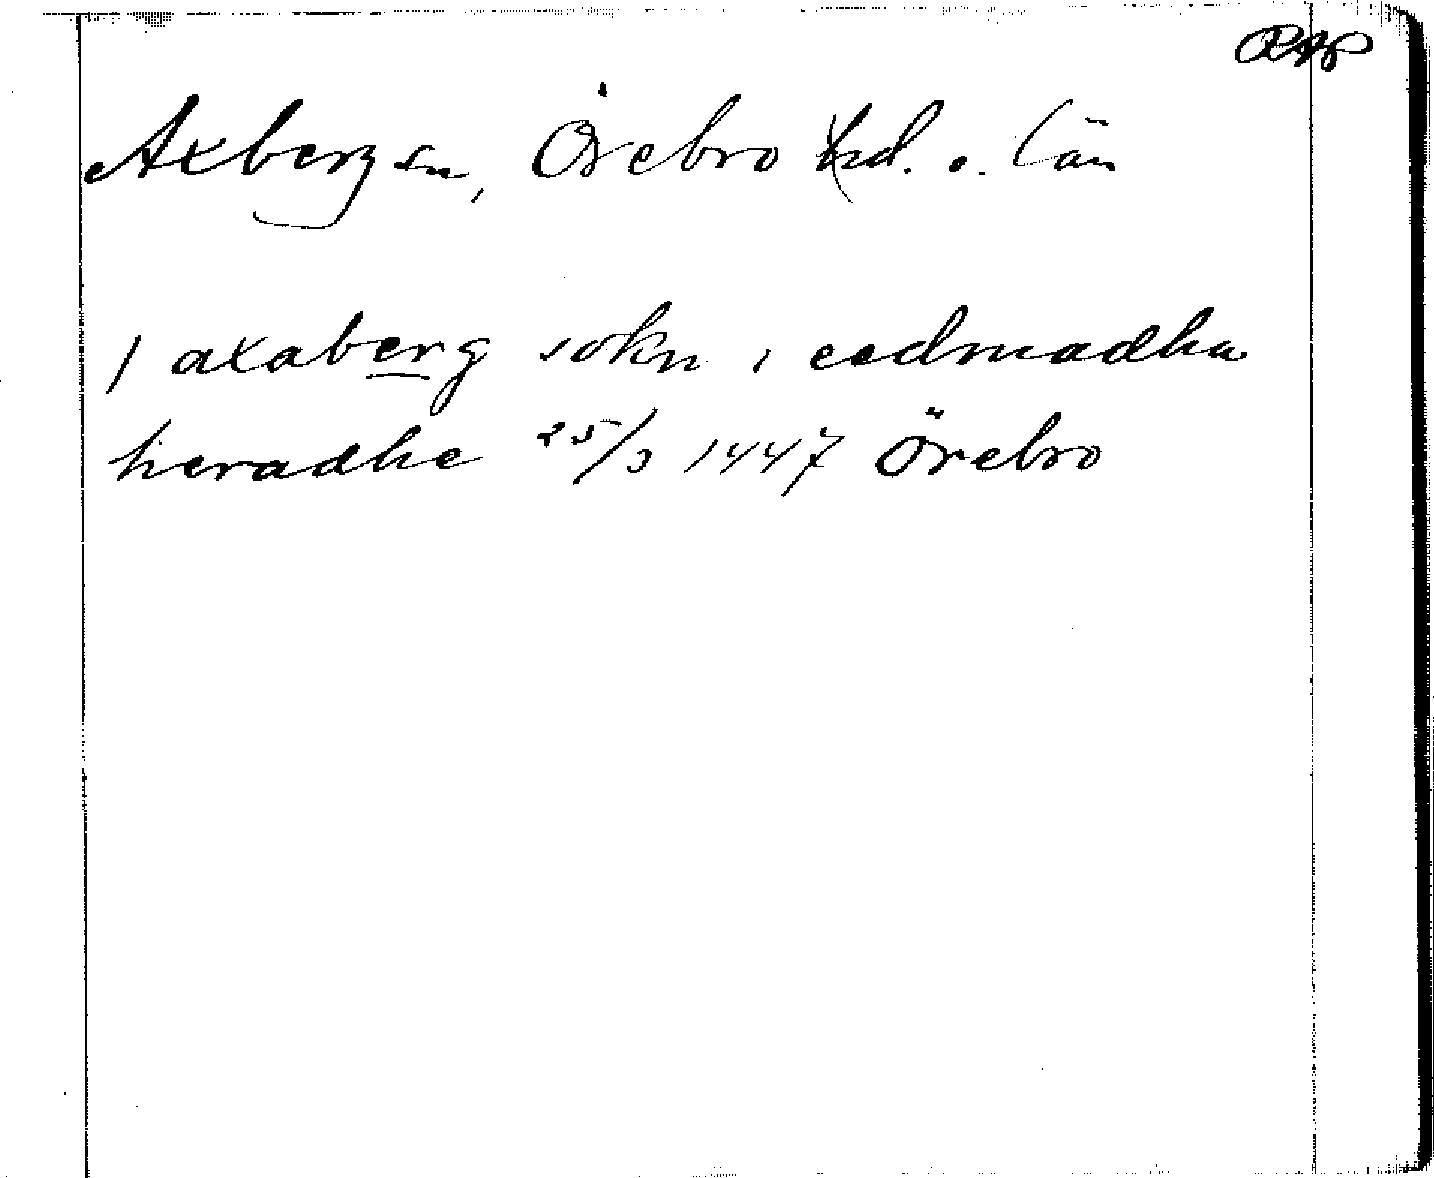 RAp
Axberg sn, Örebro hd. o. län
j axaberg sokn i eedmadha
heradhe 25/3 1447 Örebro